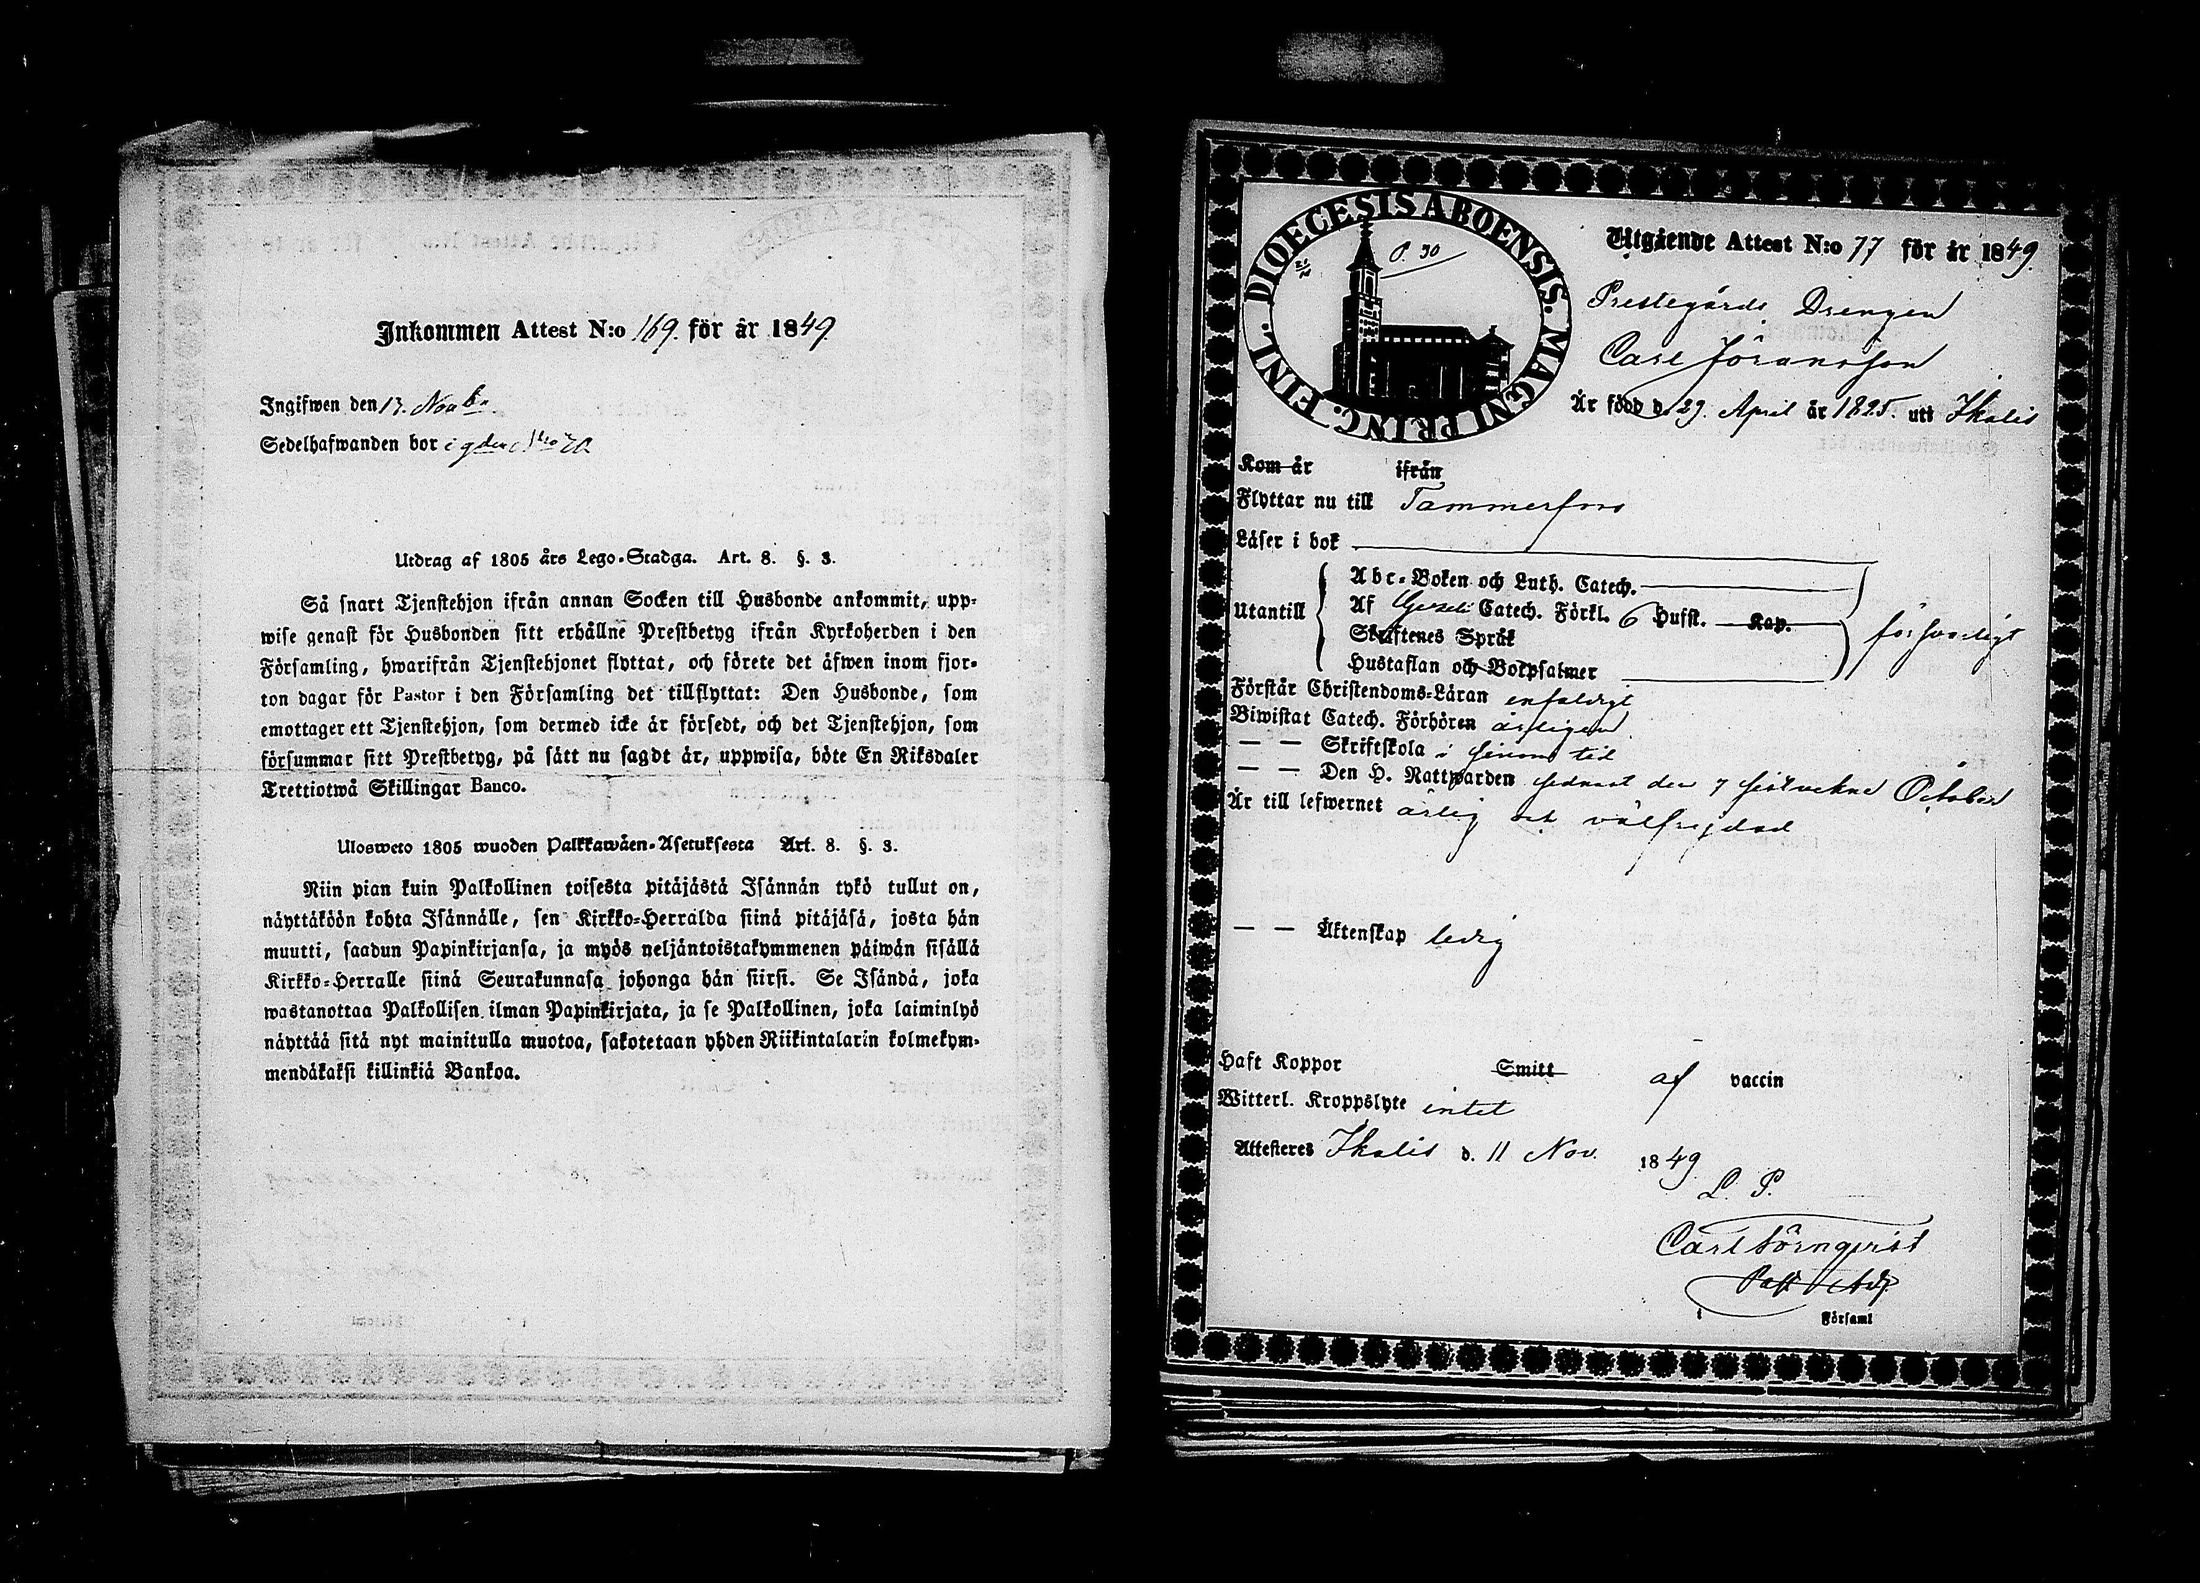 Inkommen Attest N:o 169. för år 1849.
Ingifwen den 13. Nov
Sedelhafwanden bor i
Utdrag af 1805 års Lego-Stadga. Art. 8. §. 3.
Så snart Tjenstehjon ifrån annan Socken till Husbonde ankommit, upp-
wise genast för Husbonden sitt erhållne Prestbetyg ifrån Kyrkoherden i den
Församling, hwarifrån Tjenstehjonet flyttat, och förete det äfwen inom fjor-
ton dagar för Pastor i den Församling det tillflyttat: Den Husbonde, som
emottager ett Tjenstehjon, som dermed icke är försedt, och det Tjenstehjon, som
försummar sitt Prestbetyg, på sätt nu sagdt är, uppwisa, böte En Riksdaler
Trettiotwå Skillingar Banco.
Ulosweto 1805 wuoden Palkkawäen-Asetuksesta Art. 8. §. 3.
Niin pian kuin Palkollinen toisesta pitäjästä Isännän tykö tullut on,
näyttäköön kohta Isännälle, sen Kirkko-Herralda siinä pitäjäsä, josta hän
muutti, saadun Papinkirjansa, ja myös neljäntoistakymmenen päiwän sisällä
Kirkko-Herralle siinä Seurakunnasa johonga hän siirsi. Se Isändä, joka
wastanottaa Palkollisen ilman Papinkirjata, ja se Palkollinen, joka laiminlyö
näyttää sitä nyt mainitulla muotoa, sakotetaan yhden Riikintalarin kolmekym-
mendäkaksi killinkiä Bankoa.
DIOECESIS ABOENSIS. MAGNI PRINC. FINL.
P. 30
Utgående Attest N:o 77 för år 1849.
Prestegårds Drengen
Carl Jöransson
Är född d. 29. April år 1825. uti Ikalis
Kom år ifrån
Flyttar nu till Tammerfors
Läser i bok
Utantill
Abc-Boken och Luth. Catech.
Af Catech. Förkl. 6 Hufst. Kap.
Skriftenes Språk
Hustaflan och Botpsalmer
försvarligt
Förstår Christendoms-Läran enfaldigt
Biwistat Catech. Förhören årligen
— — Skriftskola i sinom tid
— — Den H. Nattwarden sednast den 7 October
Är till lefwernet ärlig och välfrejdad
— — Äktenskap ledig
Haft Koppor Smitt af vaccin
Witterl. Kroppslyte intet
Attesteres Ikalis d. 11 Nov. 1849.
L. P.
Carl Törnqvist
Past Adj.
i Församl